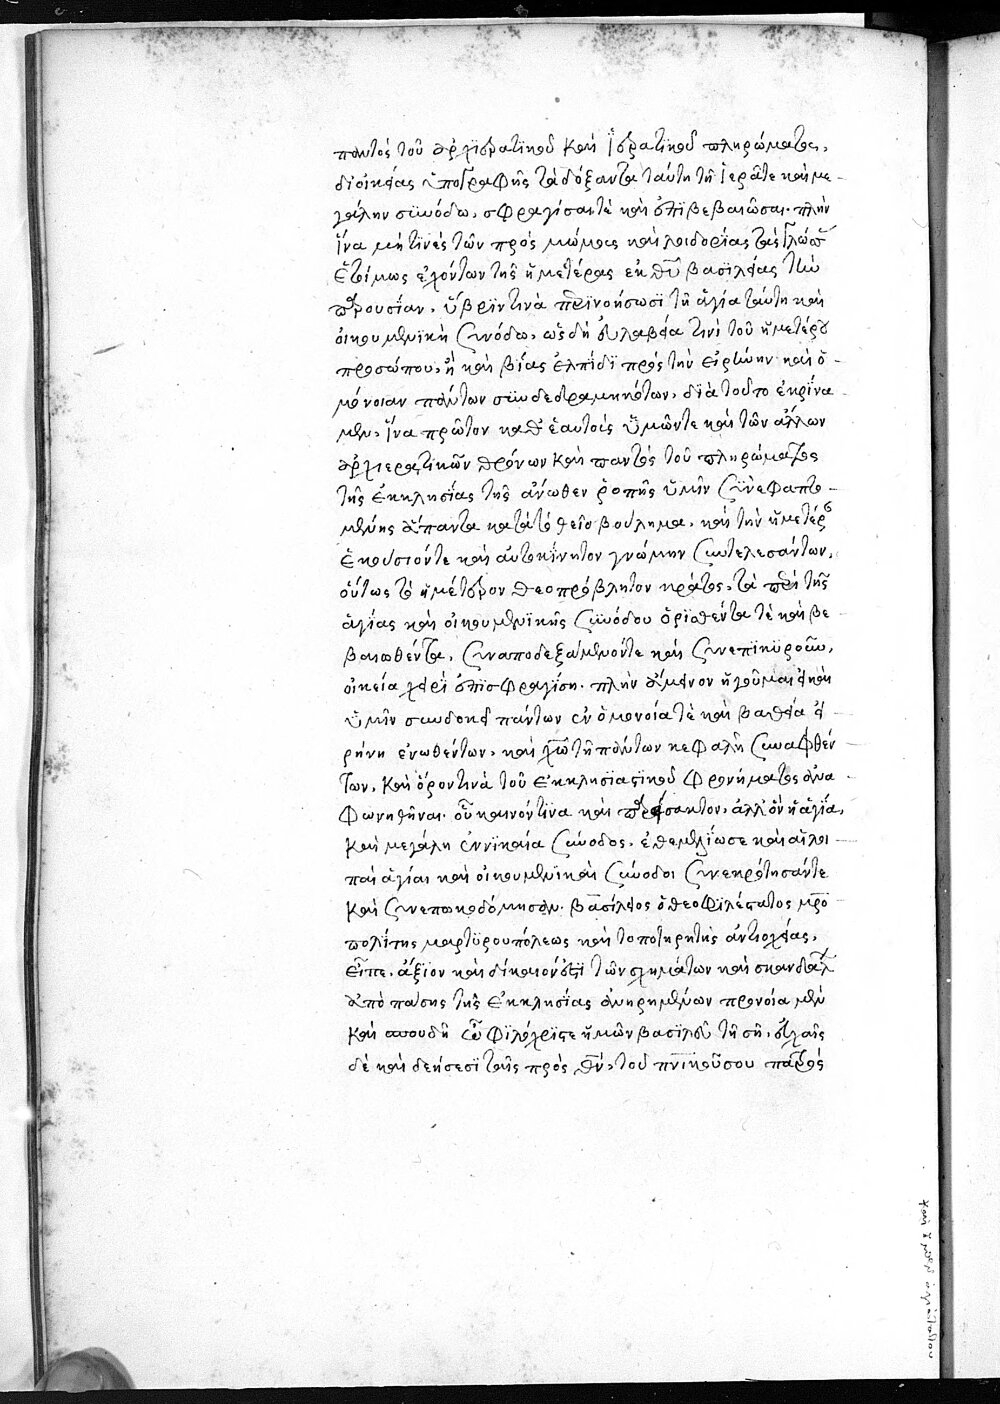 παντὸς τοῦ ἀρχιερατικοῦ καὶ ἱερατικοῦ πληρώματος,
διοικείας ὑπογραφῆς τὰ δόξαντα ταύτη τῆ ἱερᾶτε καὶ με
γάλην συνόδω, σφραγίσαι τὲ καὶ ἐπιβεβαιῶσαι. πλὴν
ἵνα μή τινὲς τῶν πρὸς μώμους καὶ λοιδορίας τὰς γλώττ
ἑτοίμως ἐχόντων τῆς ἡμετέρας ἐκ θυ βασιλείας τὴν
παρουσίαν, ὕβριν τινὰ περινοήσωσι τῆ ἁγία ταύτη καὶ
οἰκουμενικῆ συνόδω, ὡς δὴ εὐλαβεία τινὶ τοῦ ἡμετέρου
προσώπου, ἢ καὶ βίας ἐλπίδι πρὸς τὴν εἰρήνην καὶ ὁ
μόνοιαν πάντων συνδεδραμηκότων, διὰ τοῦτο ἐκρίνα
μεν, ἵνα πρῶτον καθ ἑαυτοὺς ὑμῶντε καὶ τῶν ἄλλων
ἀρχιερατικῶν θρόνων καὶ παντὸς τοῦ πληρώματος
τῆς ἐκκλησίας τῆς ἄνωθεν ῥοπῆς ὑμῖν συνεφαπτο
μένης ἅπαντα κατὰ τὸ θεῖο βούλημα, καὶ τὴν ἡμετέρ
ἑκούσιόντε καὶ αὐτοκίνητον γνώμην συντελεσάντων,
οὕτως τὸ ἡμέτερον θεοπρόβλητον κράτος, τὰ παρὰ τῆς
ἁγίας καὶ οἰκουμενικῆς συνόδου ὁρισθέντα τὲ καὶ βε
βαιωθέντα, συναποδεξάμενόντε καὶ συνεπικυροῦν,
οἰκεία χειρὶ ἐπισφραγίση. πλὴν ἄμεινον ἡγοῦμαι εἰ καὶ
ὑμῖν συνδοκεῖ πάντων ἐν ὁμονοία τὲ καὶ βαθεία εἰ
ρήνη ἑνωθέντων, καὶ χω τῆ πάντων κεφαλῆ συναφθέν
των, καὶ ὅρον τινὰ τοῦ ἐκκλησιαστικοῦ φρονήματος ἀνα
φωνηθῆναι. οὐ καινόν τινα καὶ παρείσακτον, ἀλλ ὃν ἡ ἁγία,
καὶ μεγάλη ἐν νικαία σύνοδος, ἐθεμελίωσε καὶ αἱ λοι
παὶ ἁγίαι καὶ οἰκουμενικαὶ σύνοδοι συνεκρότησάντε
καὶ συνεπωκοδόμησαν. βασίλειος ὁ θεοφιλέστατος μρο
πολίτης μαρτυρουπόλεως καὶ τοποτηρητὴς ἀντιοχείας,
εἶπε, ἄξιον καὶ δίκαιόν ἐστι τῶν σχημάτων καὶ σκανδάλ
ἀπὸ πάσης τῆς ἐκκλησίας ἀνηρημένων προνοία μὲν
καὶ σπουδῆ ὦ φιλόχριστε ἡμῶν βασιλεῦ τῆ σῆ, εὐχαῖς
δὲ καὶ δεήσεσι ταῖς πρὸς θν, τοῦ πνικοῦ σου πατρὸς